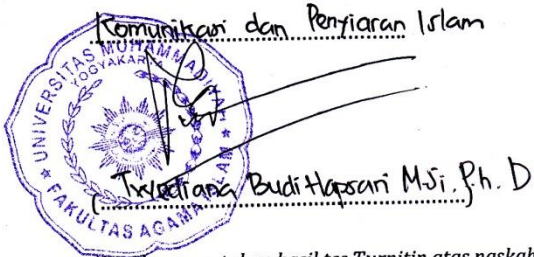 Komunikasi dan Penyiaran Islam
UNIVERSITAS MUHAMMADIYAH
YOGYAKARTA
FAKULTAS AGAMA ISLAM
Budi Hapsari M.Si. Ph. D
hasil tes Turnitin atas naskah